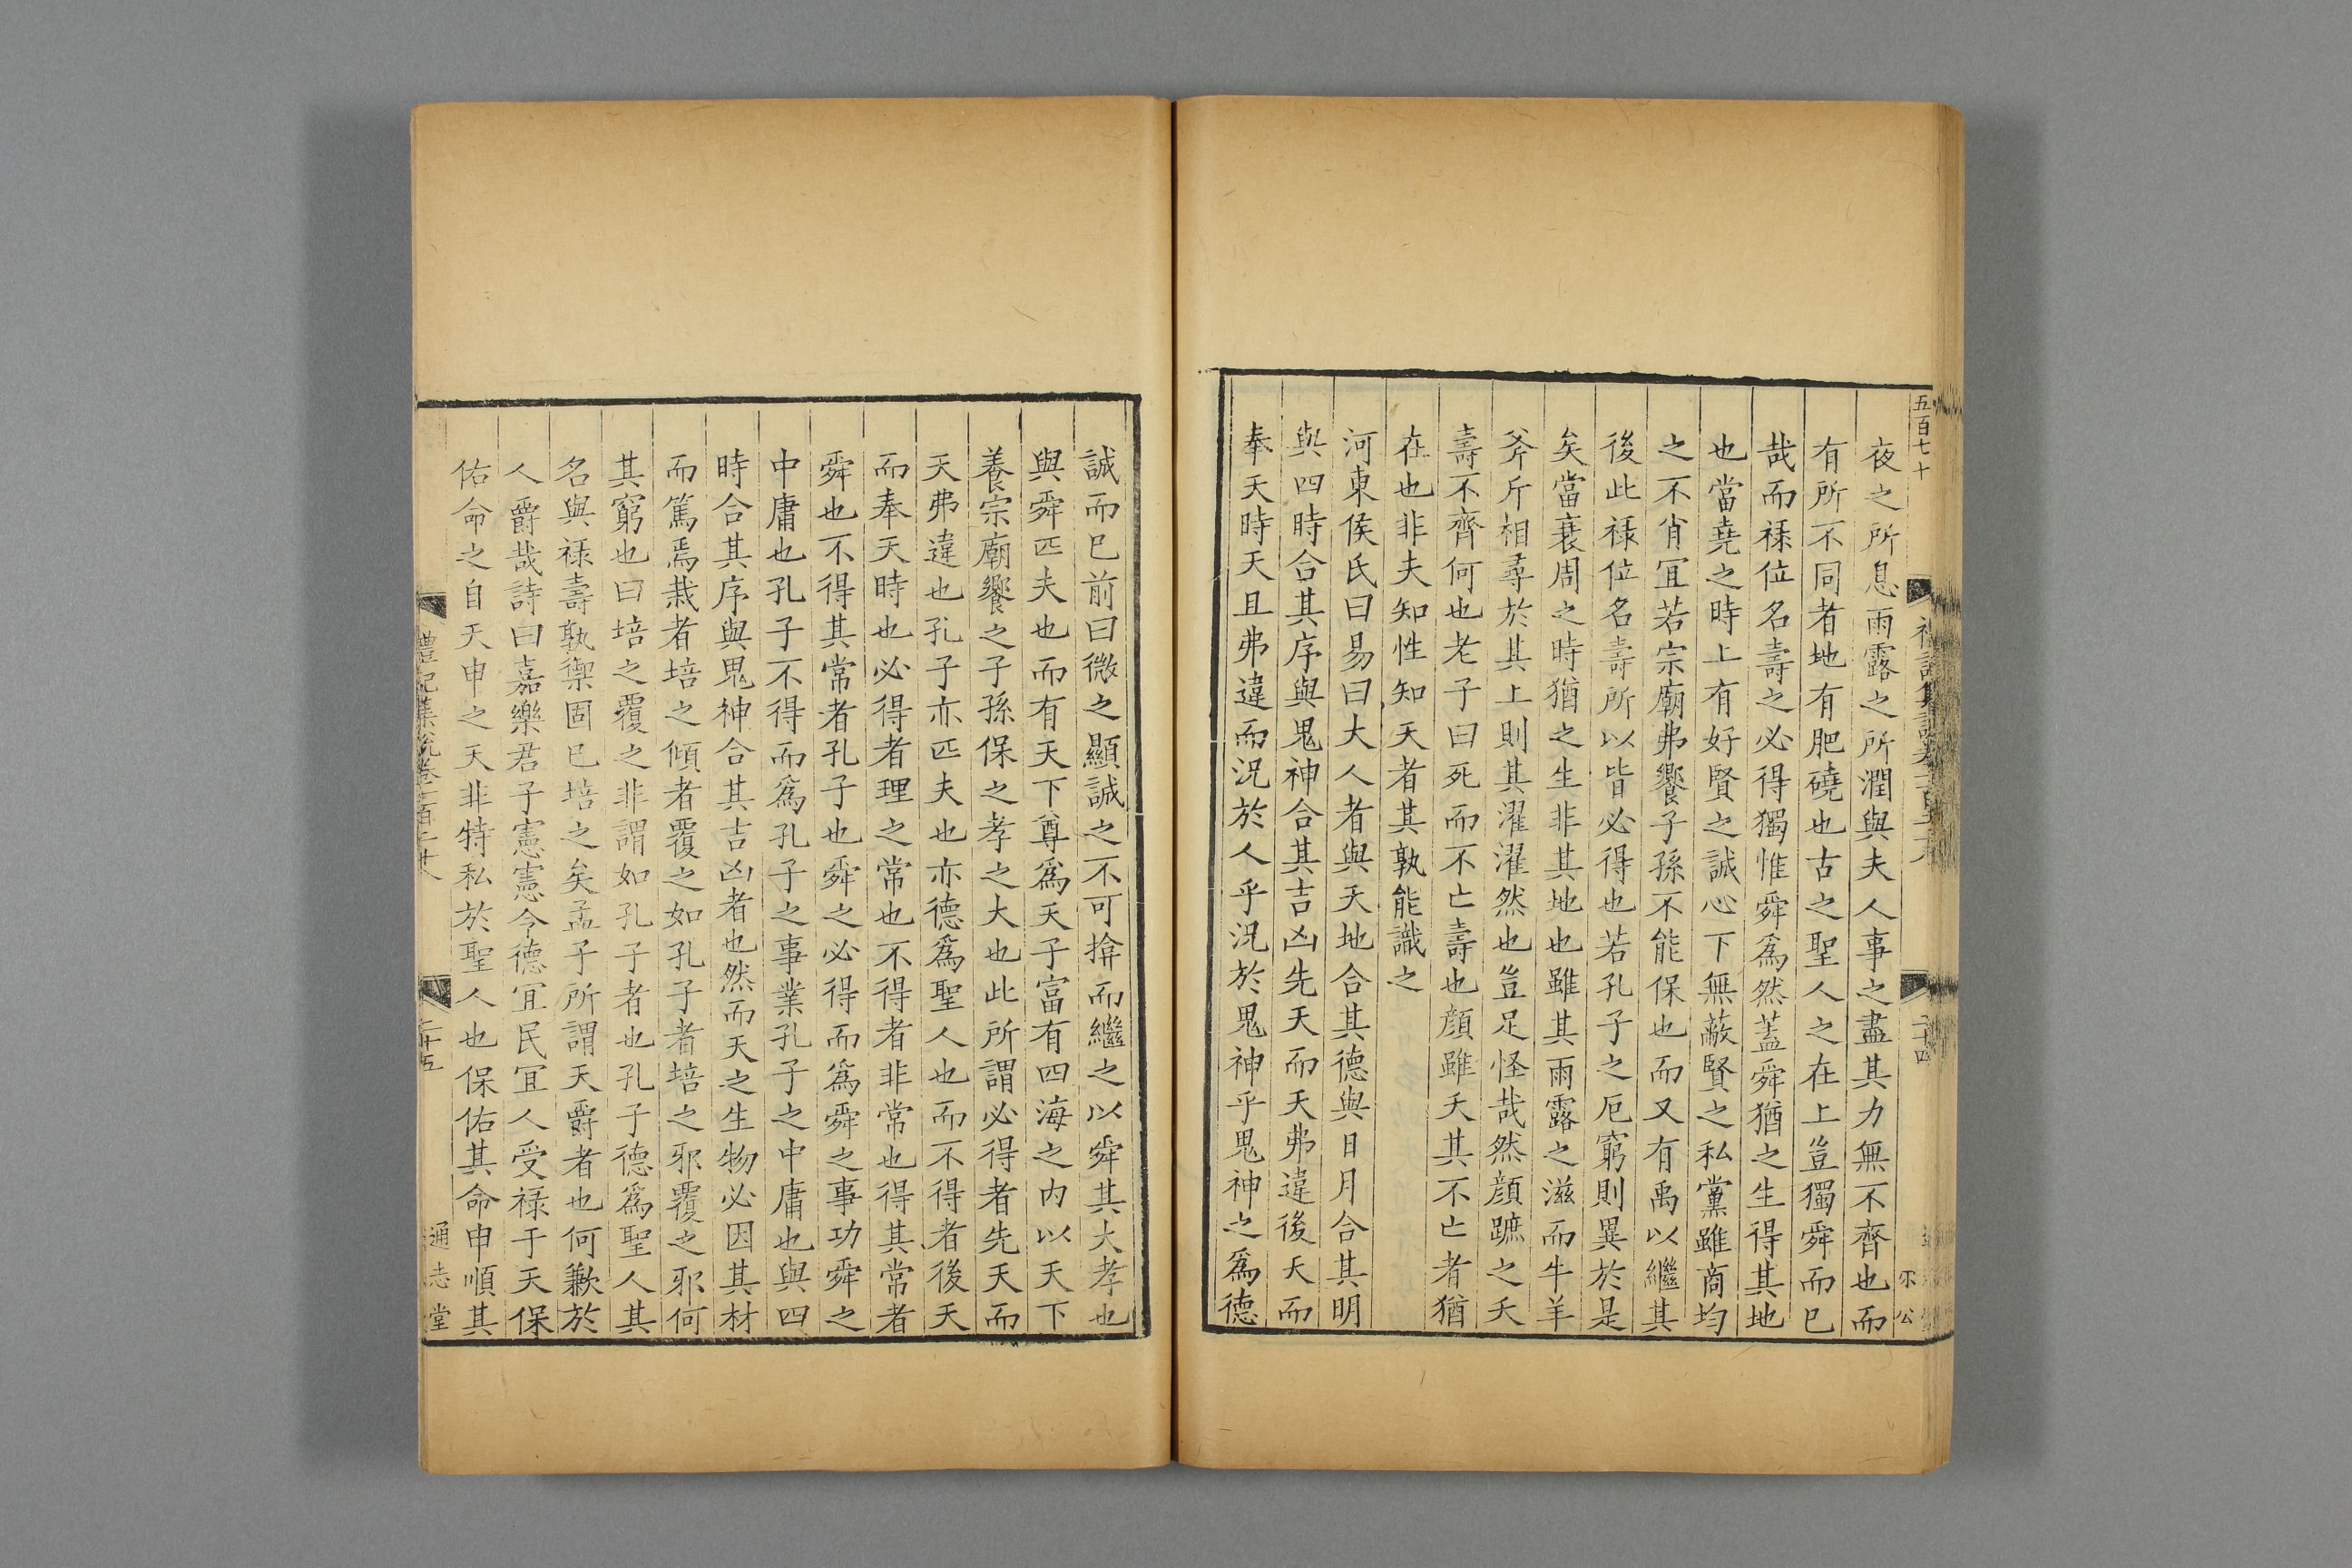 五百七十
夜之所息雨露之所潤與夫人事之盡其力無不齊也而
有所不同者地有肥磽也古之聖人之在上豈獨舜而已
哉而祿位名壽之必得獨惟舜爲然蓋舜猶之生得其地
也當堯之時上有好賢之誠心下無蔽賢之私黨雖商均
之不肖冝若宗廟弗饗子孫不能保也而又有禹以繼其
後此祿位名壽所以皆必得也若孔子之厄窮則異於是
矣當衰周之時猶之生非其地也雖其雨露之滋而牛羊
斧斤相尋於其上則其濯濯然也豈足怪哉然顔蹠之夭
壽不齊何也老子曰死而不亡壽也顔雖夭其不亡者猶
在也非夫知性知天者其孰能識之
河東侯氏曰易曰大人者與天地合其德與日月合其明
與四時合其序與鬼神合其吉凶先天而天弗違後天而
奉天時天且弗違而況於人乎況於鬼神乎鬼神之爲德
誠而已前曰微之顯誠之不可揜而繼之以舜其大孝也
與舜匹夫也而有天下尊爲天子富有四海之内以天下
養宗廟饗之子孫保之孝之大也此所謂必得者先天而
天弗違也孔子亦匹夫也亦德爲聖人也而不得者後天
而奉天時也必得者理之常也不得者非常也得其常者
舜也不得其常者孔子也舜之必得而爲舜之事功舜之
中庸也孔子不得而爲孔子之事業孔子之中庸也與四
時合其序與鬼神合其吉凶者也然而天之生物必因其材
而篤焉栽者培之傾者覆之如孔子者培之邪覆之邪何
其窮也曰培之覆之非謂如孔子者也孔子德爲聖人其
名與祿壽孰禦固已培之矣孟子所謂天爵者也何歉於
人爵哉詩曰嘉樂君子憲憲令德冝民冝人受祿于天保
佑命之自天申之天非特私於聖人也保佑其命申順其
禮記集說卷一百二十八
二十五
通志堂